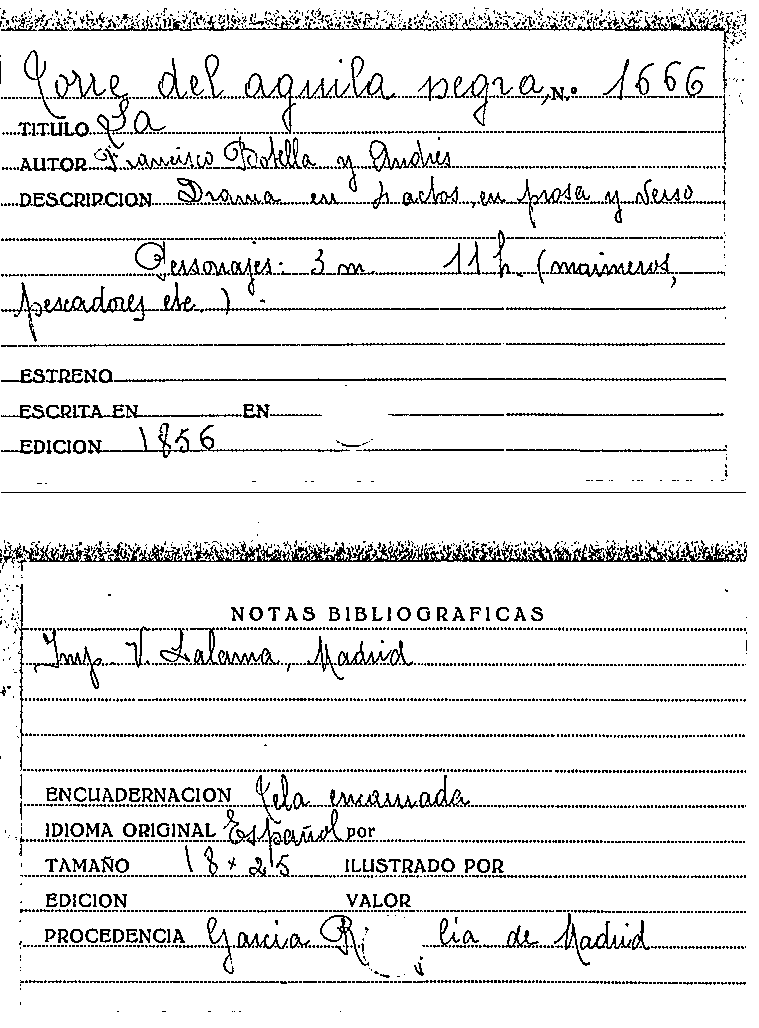 Torre del aguila negra, N.º 1666
TITULO La
AUTOR Francisco Botella y Andrés
DESCRIPCION Drama en 4 actos, en prosa y verso
Personajes: 3 m. 11 h. (marineros,
pescadores etc.) -
ESTRENO
ESCRITA EN EN
EDICION 1856
NOTAS BIBLIOGRAFICAS
Imp. V. Lalama, Madrid
ENCUADERNACION Tela encarnada
IDIOMA ORIGINAL Español por
TAMAÑO 18 x 25 ILUSTRADO POR
EDICION VALOR
PROCEDENCIA Garcia lia de Madrid